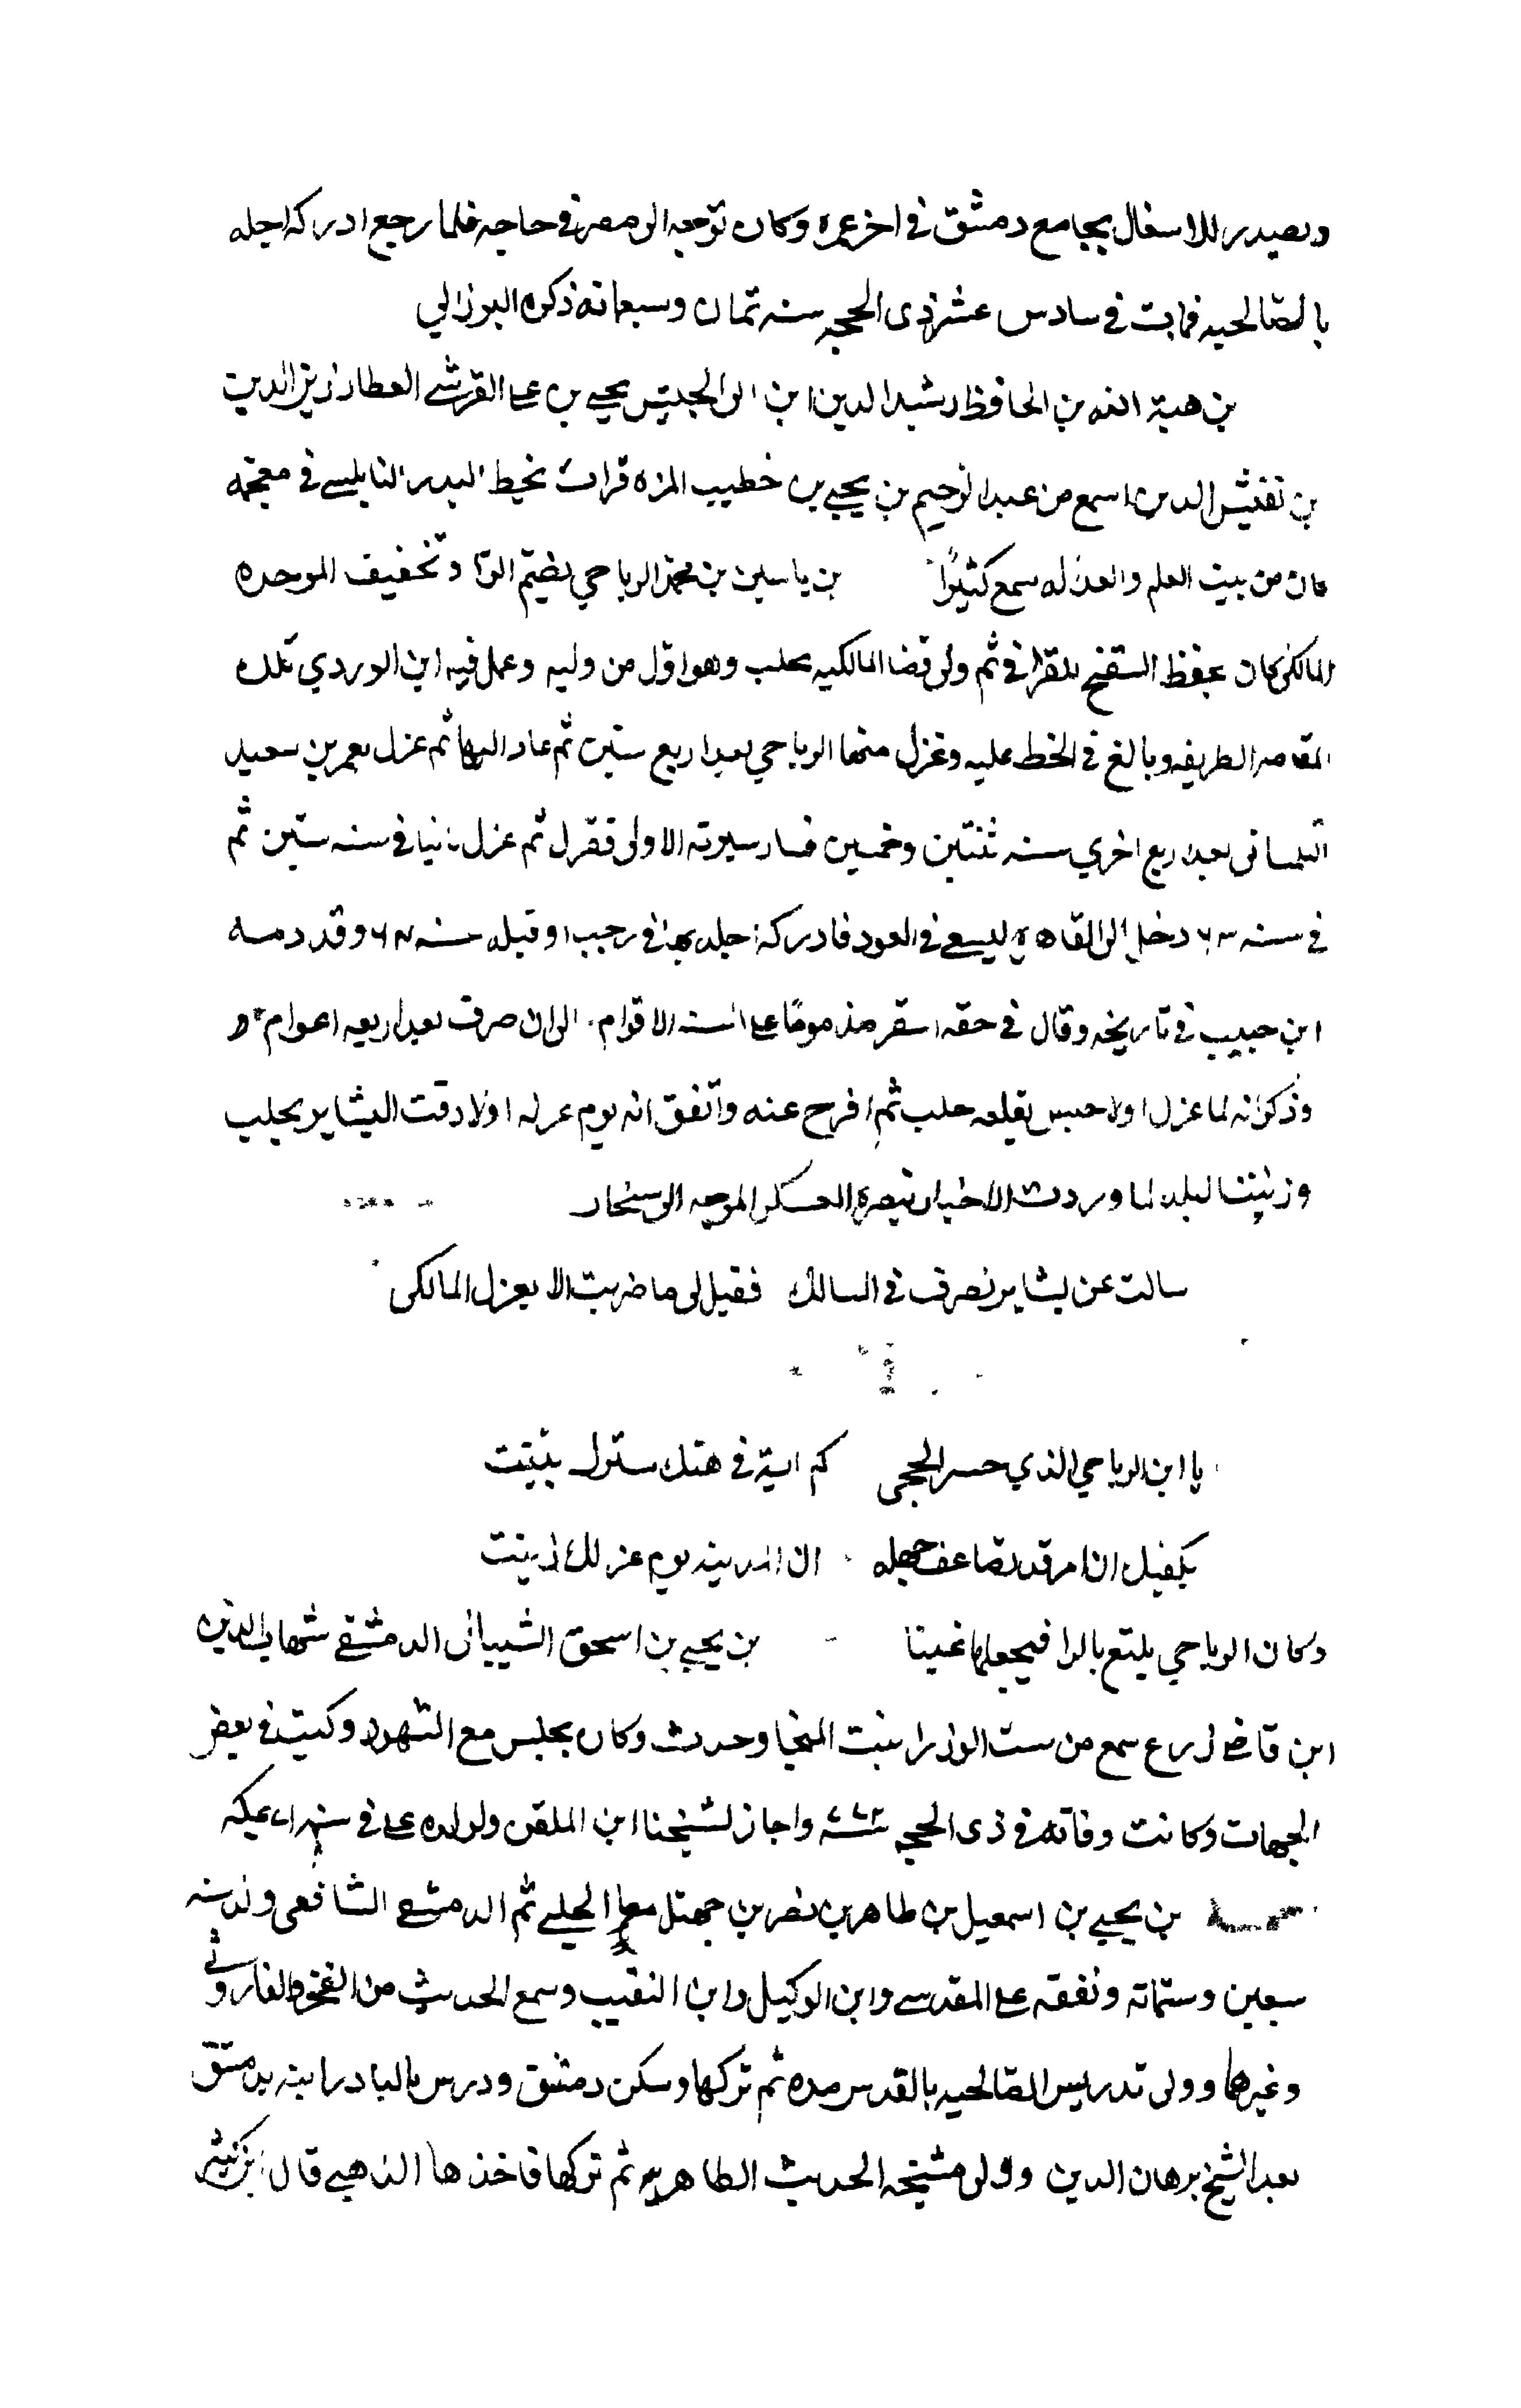 وتصدر للاشغال بجامع دمشق في اخر عمره وكان توجه الى مصر في حاجه فلما رجع ادركه اجله
بالصالحيه فمات في سادس عشر ذي الحجه سنه ثمان وسبعمائه ذكره البرزالي
بن هبة الله بن الحافظ رشيد الدين ابن ابى الحسين يحيى بن على القرشي العطار زين الدين
بن الدين اسمع من عبد الرحيم بن يحيى بن خطيب المزه قرات بخط البدر النابلسي في معجمه
كان من بيت العلم والعداله سمع كثيرا بن ياسين بن محمد الرباحي بضم الرا وتخفيف الموحده
المالكي كان يحفظ التنقيح للقرافي ثم ولى قضا المالكيه بحلب وهو اول من وليه وعمل فيه ابن الوردي تلك
المقامه الظريفه وبالغ في الحط عليه وعزل منها الرباحي بعد اربع سنين ثم عاد اليها ثم عزل بعمر بن سعيد
التلمسانى بعد اربع اخري سنه ثنتين وخمسين فسار سيرته الاولى فعزل ثم عزل ثانيا في سنه ستين ثم
في سنه ٦٣ دخل الى القاهره ليسعى في العود فادركه اجله بها في رجب او قبله سنه ٦٤ وقد ذمه
ابن حبيب في تاريخه وقال في حقه استقر مذموما على السنه الاقوام الى ان صرف بعد اربعه اعوام
وذكر انه لما عزل اولا حبس بقلعه حلب ثم افرج عنه واتفق انه يوم عزله اولا دقت البشاير بحلب
وزينت البلد لما وردت الاخبار بنصره العسكر الموجه الى سنجار
سالت عن بشاير تضرب في المسالك فقيل لى ما ضربت الا بعزل المالكى
يا ابن الرباحي الذي خسر الحجى كم اية في هتك سترك بينت
يكفيك ان امر قد تضاعف جهله ان المدينه يوم عزلك زينت
وكان الرباحي يلثغ بالرا فيجعلها غينا بن يحيى بن اسحق الشيبانى الدمشقي شهاب الدين
ابن قاضى زرع سمع من ست الوزرا بنت المنجا وحدث وكان يجلس مع الشهود وكتب في بعض
الجهات وكانت وفاته في ذى الحجه واجاز لشيخنا ابن الملقن ولولده على في
بن يحيى بن اسمعيل بن طاهر بن نصر بن جهبل الحلبي ثم الدمشقي الشافعى ولد سنه
سبعين وستمائة وتفقه على المقدسي وابن الوكيل وابن النقيب وسمع الحديث من الفخر والفاروثي
وغيرهما وولى تدريس الصالحيه بالقدس مده ثم تركها وسكن دمشق ودرس بالبادرائيه بدمشق
بعد الشيخ برهان الدين وولى مشيخه الحديث الظاهريه ثم تركها فاخذها الذهبي قال ابن كثير